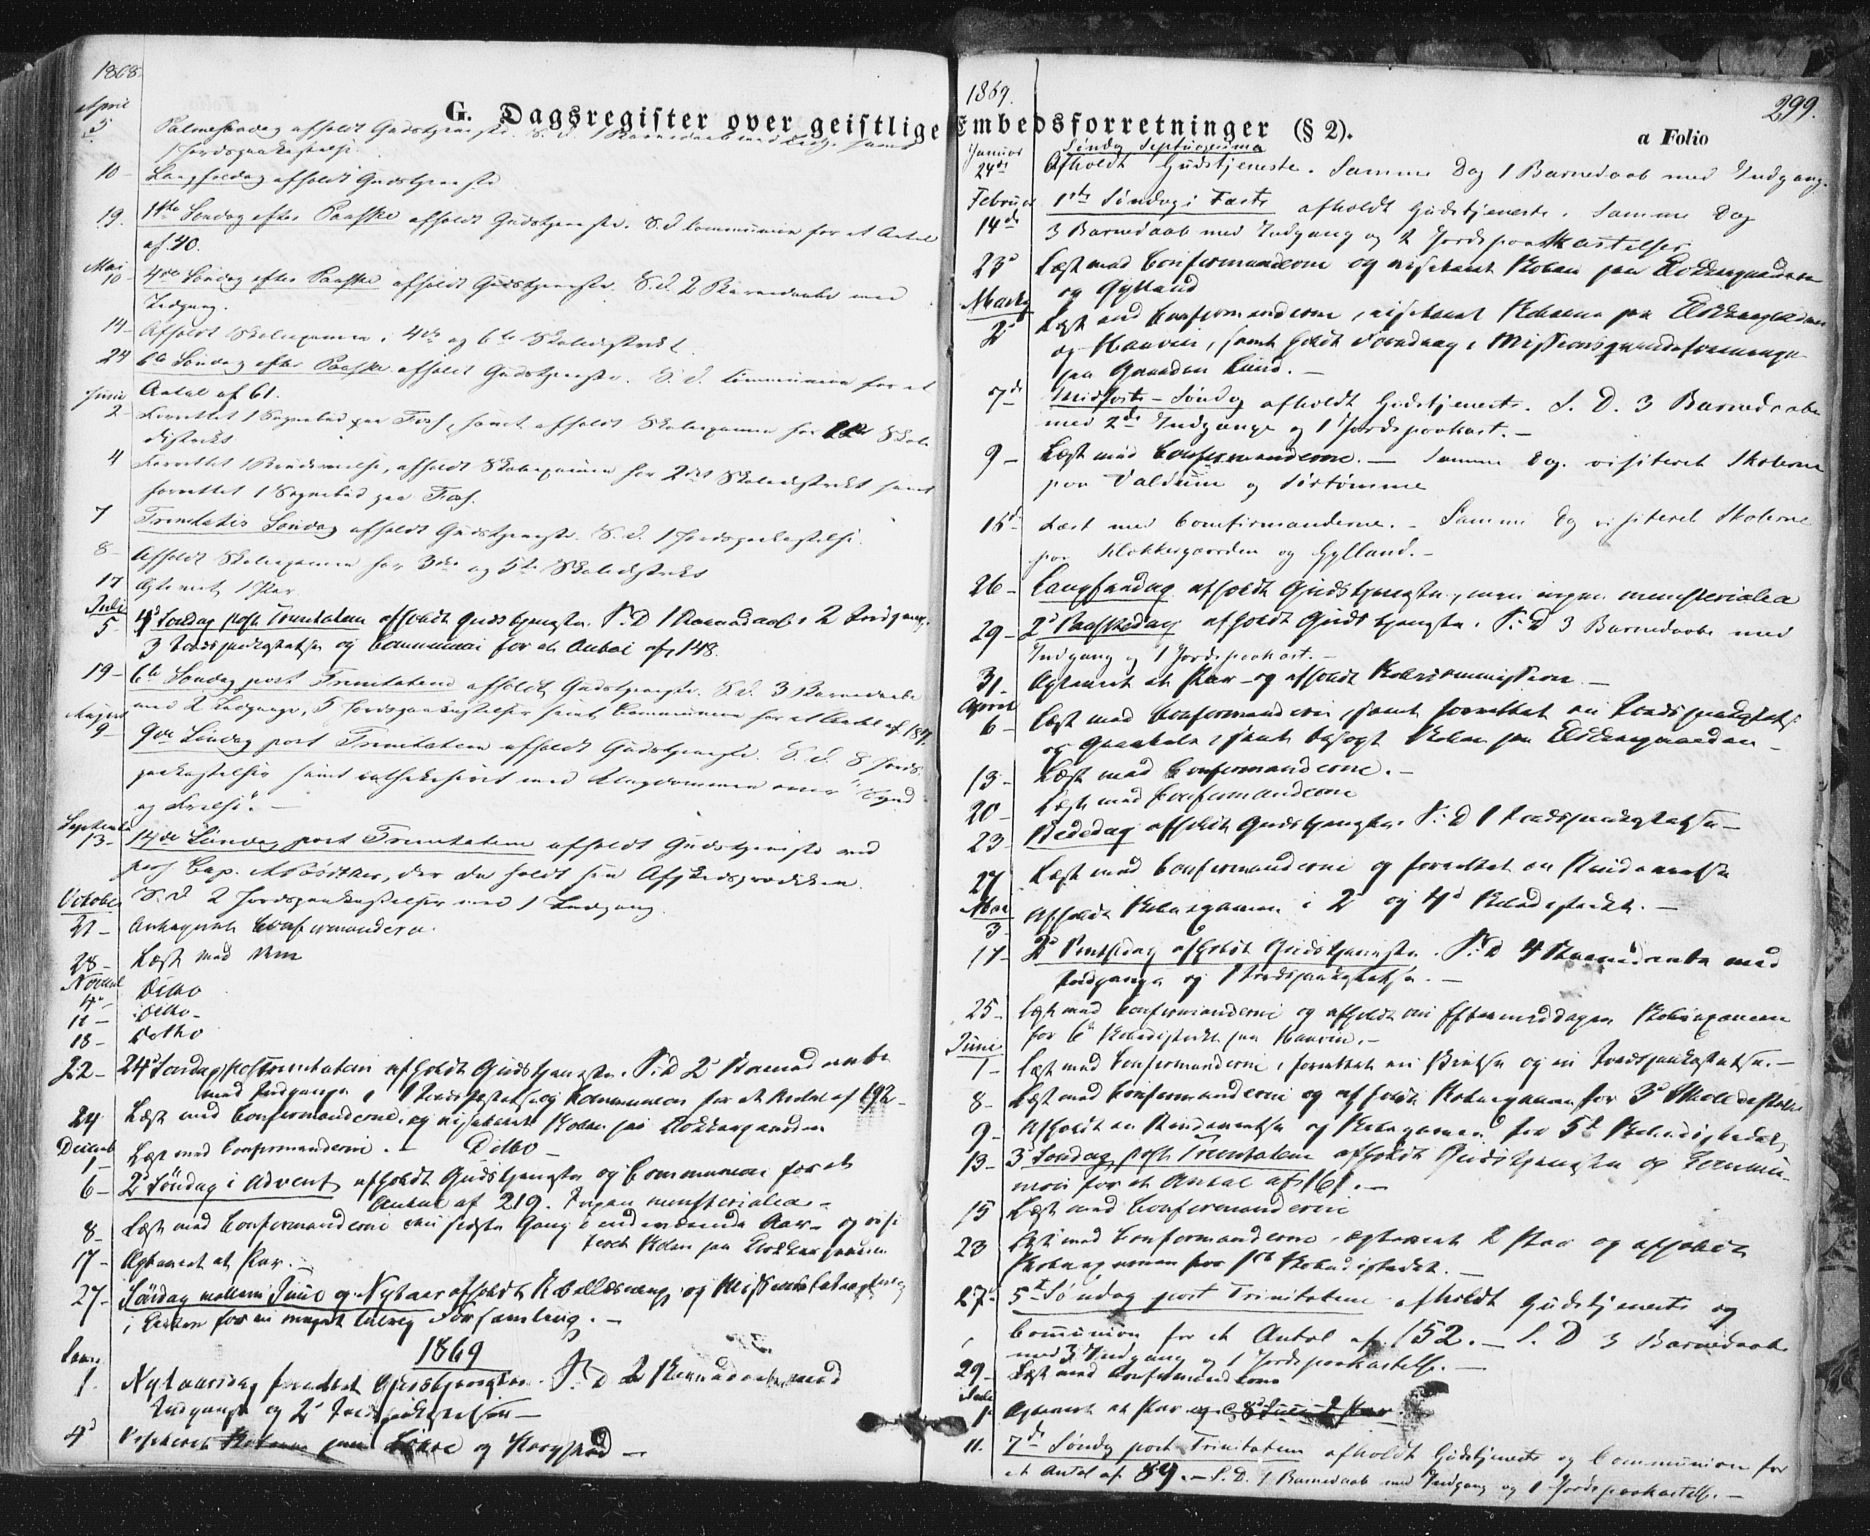 1868.
G. Dagsregister over geistlige
April
5 Palmesøndag afholdt Gudstjeneste. S. d. 1 Barnedaab med Indg. samt
1 Jordspaakastelse.
10 - Langfredag afholdt Gudstjeneste
19. 1ste Søndag efter Paaske afholdt Gudstjeneste. S. d. Communion for et Antal
af 40.
Mai
10 - 4de Søndag efter Paaske afholdt Gudstjeneste. S. d. 2 Barnedaabe med
Indgang.
14 - Afholdt Skoleexamen i 4de og 6te Skoledistrikt
24 6te Søndag efter Paaske afholdt Gudstjeneste. S. d. Communion for et
Antal af 61.
Juni
2 - Forrettet 1 Sognebud paa Foss, samt afholdt Skoleexamen for Skole-
distrikt
4 Forrettet 1 Brudevielse, afholdt Skoleexamen for 2det Skoledistrikt samt
forrettet 1 Sognebud paa Foss.
7 Trinitatis Søndag afholdt Gudstjeneste. S. d. 1 Jordspaakastelse.
8 - Afholdt Skoleexamen for 3die og 5te Skoledistrikt
17 Ægteviet 1 Par
Juli
5 4d Søndag post Trinitatem afholdt Gudstjeneste. S. D 1 Barnedaab, 2 Indgang,
3 Jordspaakastelse og Communion for et Antal af 148.
19 - 6te Søndag post Trinitatem afholdt Gudstjeneste. S. d. 3 Barnedaabe
med 2 Indgange, 5 Jordspaakastelser samt Communion for et Antal af 187.
August
9 - 9de Søndag post Trinitatem afholdt Gudstjeneste. S. d. 8 Jords-
paakastelser samt cathekiseret med Ungdommen over "Synd
og Frelse". -
September
13 - 14de Søndag post Trinitatem afholdt Gudstjeneste ved
pers. Cap. der da holdt sin Afskedsprædiken.
S. d 2 Jordspaakastelser med 1 Indgang.
October
21 - Antegnede Confirmandera.
28 - Læst med dem
Novemb
4 - Ditto
11 - Ditto -
18 - Ditto
22 - 24d Søndag post Trinitatem afholdt Gudstjeneste. S. D 2 Barnedaabe
med Indgange, 1 Jordspaakastelse og Kommunion for et Antal af 192 -
24 Læst med Confirmanderne og visiteret Skolen paa Klokkergaarden
Decemb
1 - Læst med Confirmanderne. - Ditto -
6 - 2d Søndag i Advent, afholdt Gudstjeneste og Communion for et
Antal af 219. Ingen ministerialia. -
8 - Læst med Confirmanderne den sidste Gang i indeværende Aar - og visi-
teret Skolen paa Klokkergaarden
17 - Ægteviet et Par. -
27 - Søndag mellem Juul og Nytaar afholdt Bibellæsning og Missionsbetragtning
i Kirken for en meget talrig Forsamling. -
1869
Januar
1. Nytaarsdag forrettet Gudstjeneste. S. D 2 Barnedaabe med
Indgange og 2 Jordspaakastelser -
4d Visiteret Skolerne paa og -
1869.
Embedsforretninger (§ 2).
299.
a Folio
Januar
24de Søndag Septuagesima
Afholdt Gudstjeneste. Samme Dag 1 Barnedaab med Indgang.
Februar
14de 1ste Søndag i Faste afholdt Gudstjeneste. Samme Dag
3 Barnedaab med Indgang og 2 Jordspaakastelser
23d Læst med Confirmanderne og visiteret Skolen paa Klokkergaarden
og Gylland
Marts
2d Læst med Confirmanderne, visiteret Skolerne paa Klokkergaarden
og Haavin, samt holdt Foredrag i Missionsqvindeforeningen
paa Gaarden Lund. -
7de Midfaste - Søndag afholdt Gudstjeneste. S. D. 3 Barnedaabe
med 2de Indgange og 1 Jordspaakast. -
9 - Læst med Confirmanderne. - Samme Dag visiteret Skolerne
paa Valdum og Sørtømme
16d Læst med Comfirmanderne. - Samme Dag visiteret Skolerne
paa Klokkergaarden og Gylland. -
26 - Langfredag afholdt Gudstjeneste, men ingen ministerialia
29 - 2d Paaskedag afholdt Gudstjeneste. S. D 3 Barnedaabe med
Indgang og 1 Jordspaakast. -
31 - Ægteviet et Par - og afholdt Skolecommission. -
April
6 - Læst med Confirmanderne, samt forrettet en Jordspaakastelse
og samt besøgt Skolen paa Klokkergaarden -
13 - Læst med Confirmanderne. -
20 - Læst med Confirmanderne
23 Bededag afholdt Gudstjeneste. S. D 1 Jordspaakastelse -
27 Læst med Confirmanderne og forrettet en Brudevielse
Mai
3 - Afholdt Skoleexamen i 2d og 4d Skoledistrikt. -
17 - 2d Pintsedag afholdt Gudstjeneste. S. D 4 Barnedaabe med
Indgange og 1 Jordspaakastelse. -
25 - Læst med Confirmanderne og afholdt om Eftermiddagen Skoleexamen
for 6te Skoledistrikt paa Haavin. -
Juni
1 - Læst med Confirmanderne, forrettet en Vielse og en Jordspaakastelse. -
8 - Læst med Confirmanderne og afholdt Skoleexamen for 3d Skoledistrikt
9 - Afholdt en Brudevielse og Skoleexamen for 5te Skoledistrikt
13 - 3d Søndag post Trinitatem afholdt Gudstjeneste og Commu-
nion for et Antal af 161. -
15 Læst med Confirmanderne
23 Læst med Confirmanderne, ægteviet 2 Par og afholdt
Skoleexamen for 1ste Skoledistrikt. -
27d 5te Søndag post Trinitatem afholdt Gudstjeneste og
Communion for et Antal af 152. - S. D 3 Barnedaabe
med 3 Indgang og 1 Jordspaakastelse. -
29 - Læst med Confirmanderne
Juli
1 Ægteviet et Par
11. 7de Søndag post Trinitatem afholdt Gudstjeneste og Communion for
et Antal af 89. - S. D. 1 Barnedaab med Indgang og 1 Jordspaakastelse. -